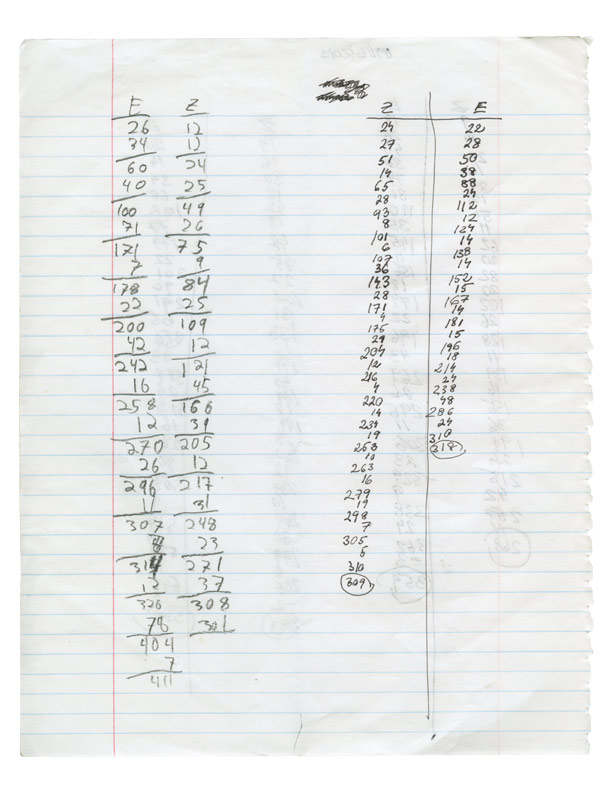 E Z
26 12
34 12
60 24
40 25
100 49
71 26
171 75
7 9
178 84
22 25
200 109
42 12
242 121
16 45
258 166
12 39
270 205
26 12
296 217
11 31
307 248
23
314 271
12 37
326 308
78 301
404
7
411
Z
24
27
51
14
65
28
93
8
101
6
107
36
143
28
171
4
175
29
204
12
216
4
220
14
234
19
253
10
263
16
279
19
298
7
305
5
310
309
E
22
28
50
38
88
24
112
12
124
14
138
14
152
15
167
14
181
15
196
18
214
24
238
48
286
24
310
318